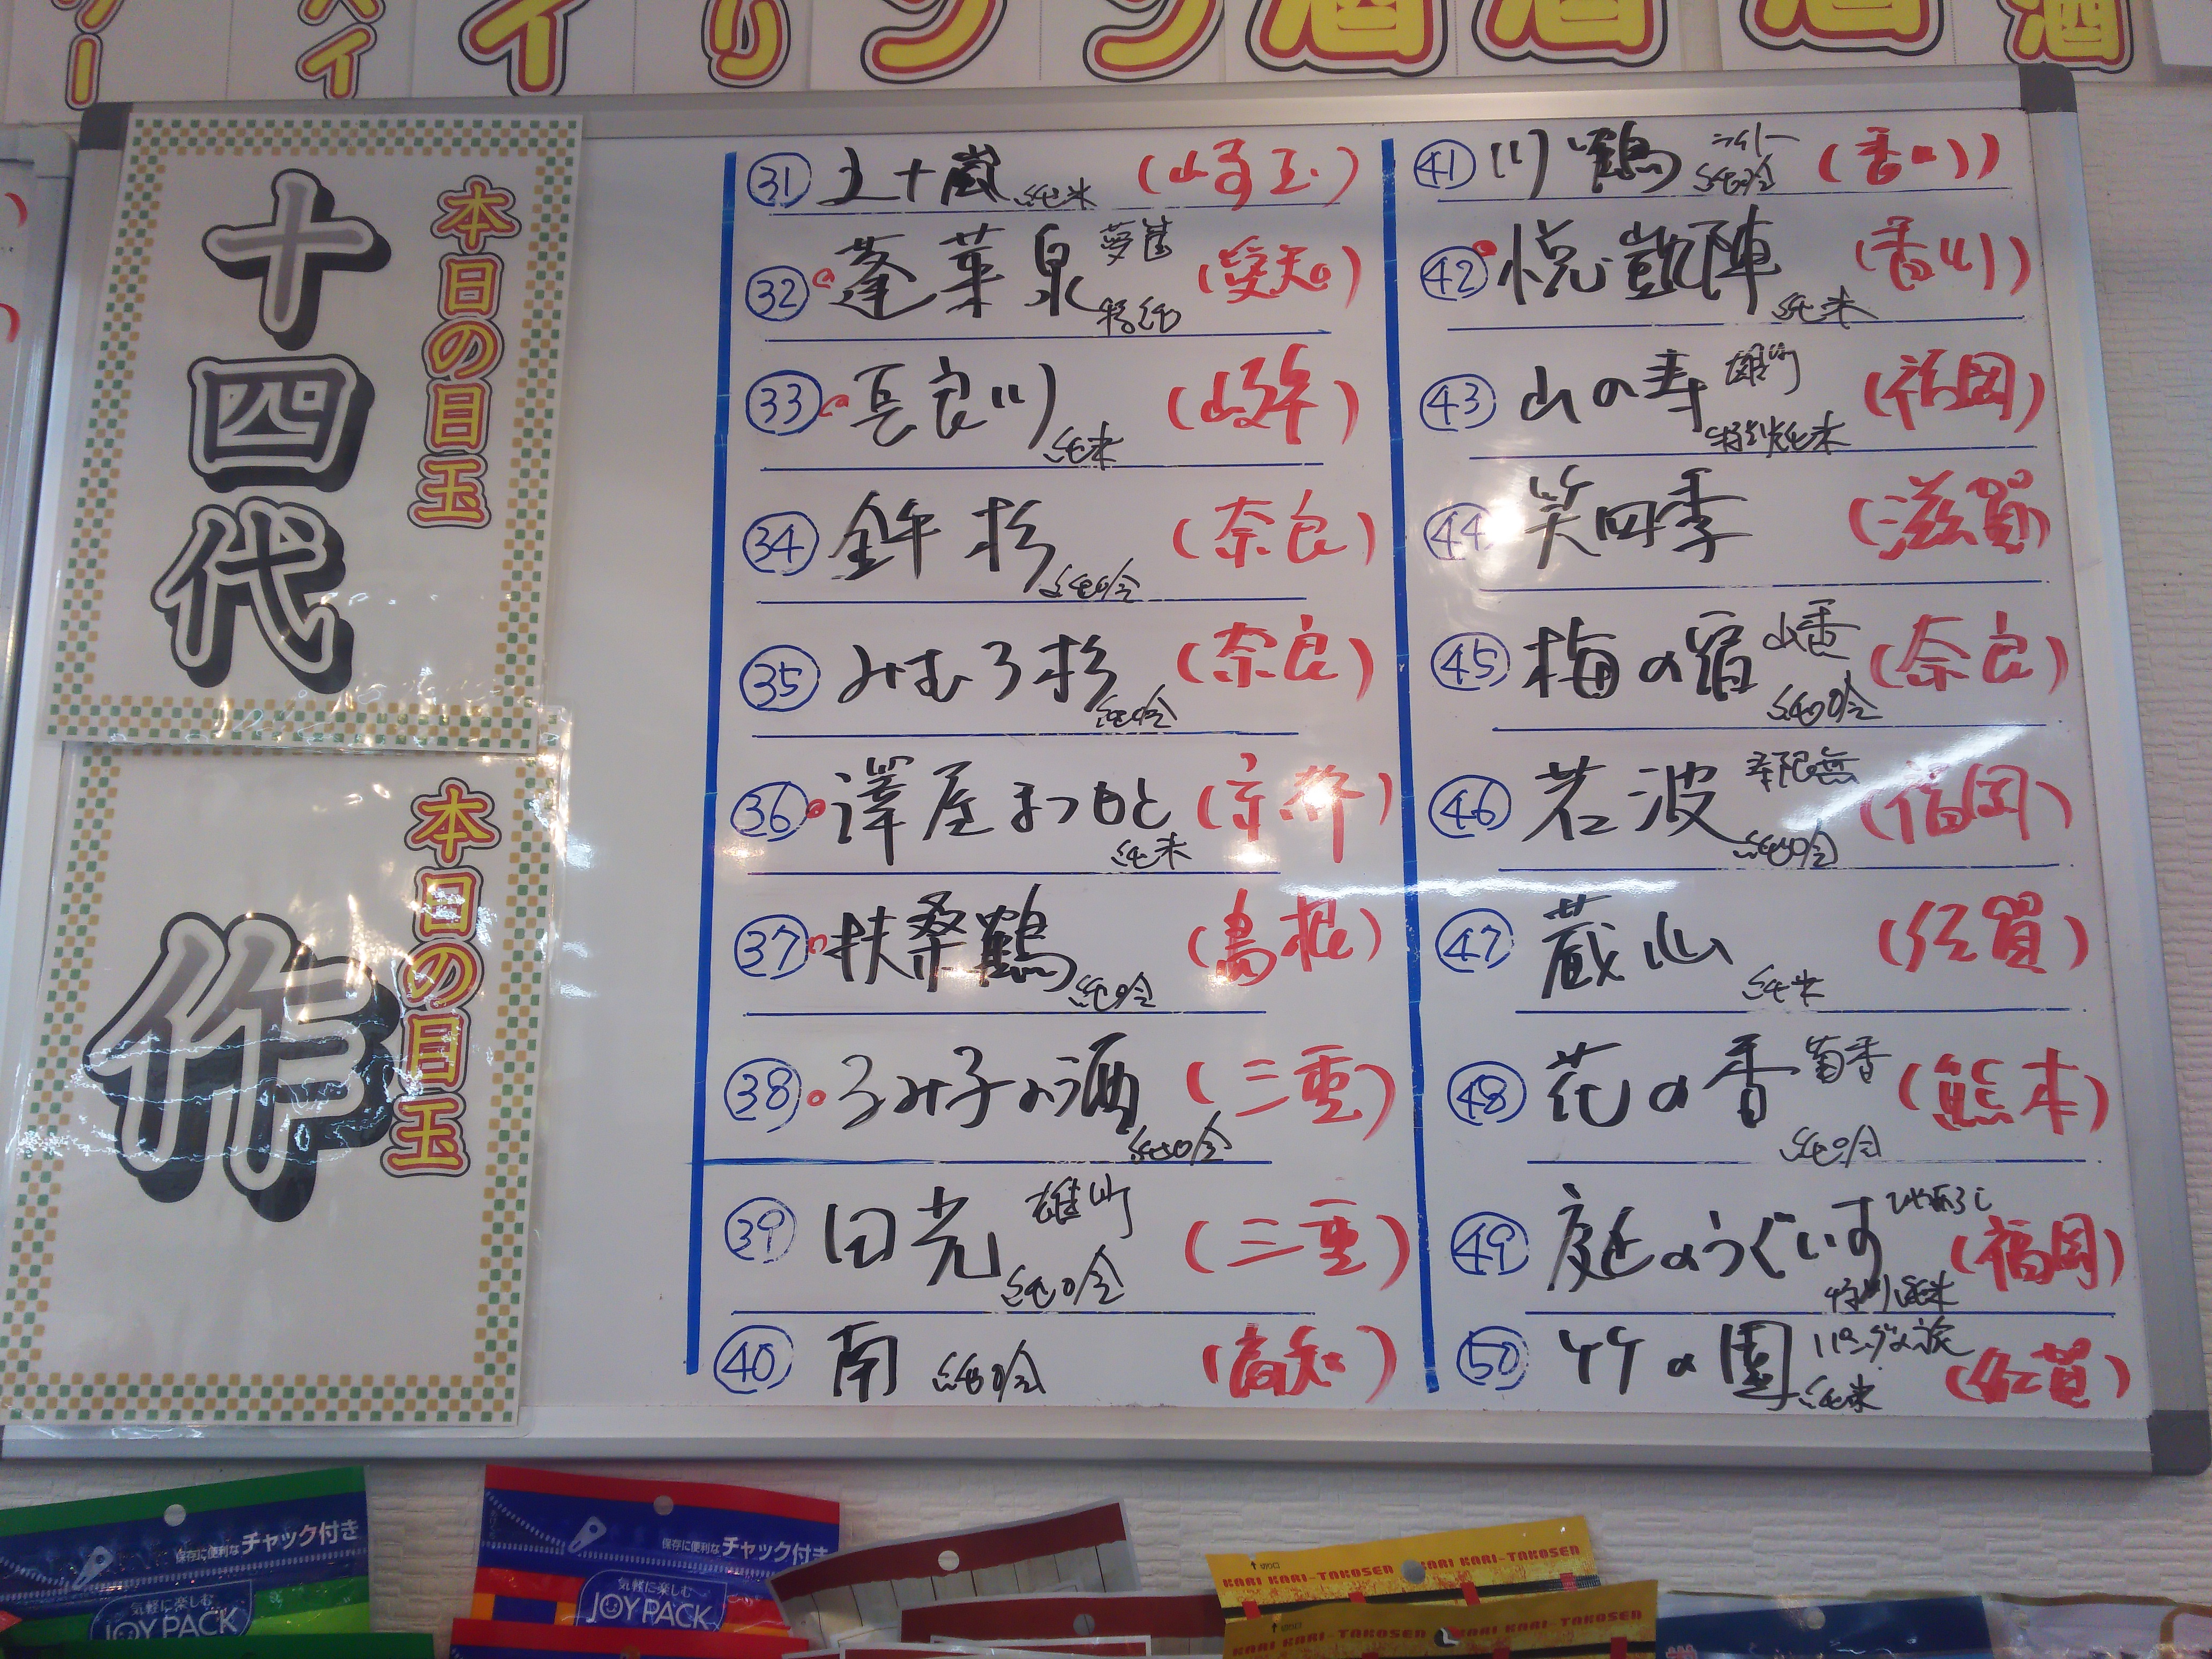 酒酒酒酒
本日の目玉
十四代
本日の目玉
作
㉛ 五十嵐 純米 (埼玉)
㉜ 蓬莱泉 特純 (愛知)
㉝ 長良川 純米 (岐阜)
㉞ 金鉾杉 純吟 (奈良)
㉟ みむろ杉 純吟 (奈良)
㊱ 澤屋まつもと 純米 (京都)
㊲ 扶桑鶴 純吟 (島根)
㊳ るみ子の酒 純吟 (三重)
㊴ 田光 雄町 純吟 (三重)
㊵ 南 純吟 (高知)
㊶ 川鶴 純吟 (香川)
㊷ 悦凱陣 純米 (香川)
㊸ 山の寿 雄町 特別純米 (福岡)
㊹ 笑四季 (滋賀)
㊺ 梅の宿 山香 純吟 (奈良)
㊻ 若波 寿限無 純吟 (福岡)
㊼ 蔵心 純米 (佐賀)
㊽ 花の香 菊香 純吟 (熊本)
㊾ 庭のうぐいす ひやおろし 特別純米 (福岡)
㊿ 竹の園 純米 (佐賀)
保存に便利なチャック付き
気軽に楽しむ
JOY PACK
保存に便利なチャック付き
気軽に楽しむ
JOY PACK
KARI KARI-TAKOSEN KARI KARI-TAKOSEN
KARI KARI-TAKOSEN KARI KARI-TAKOSEN